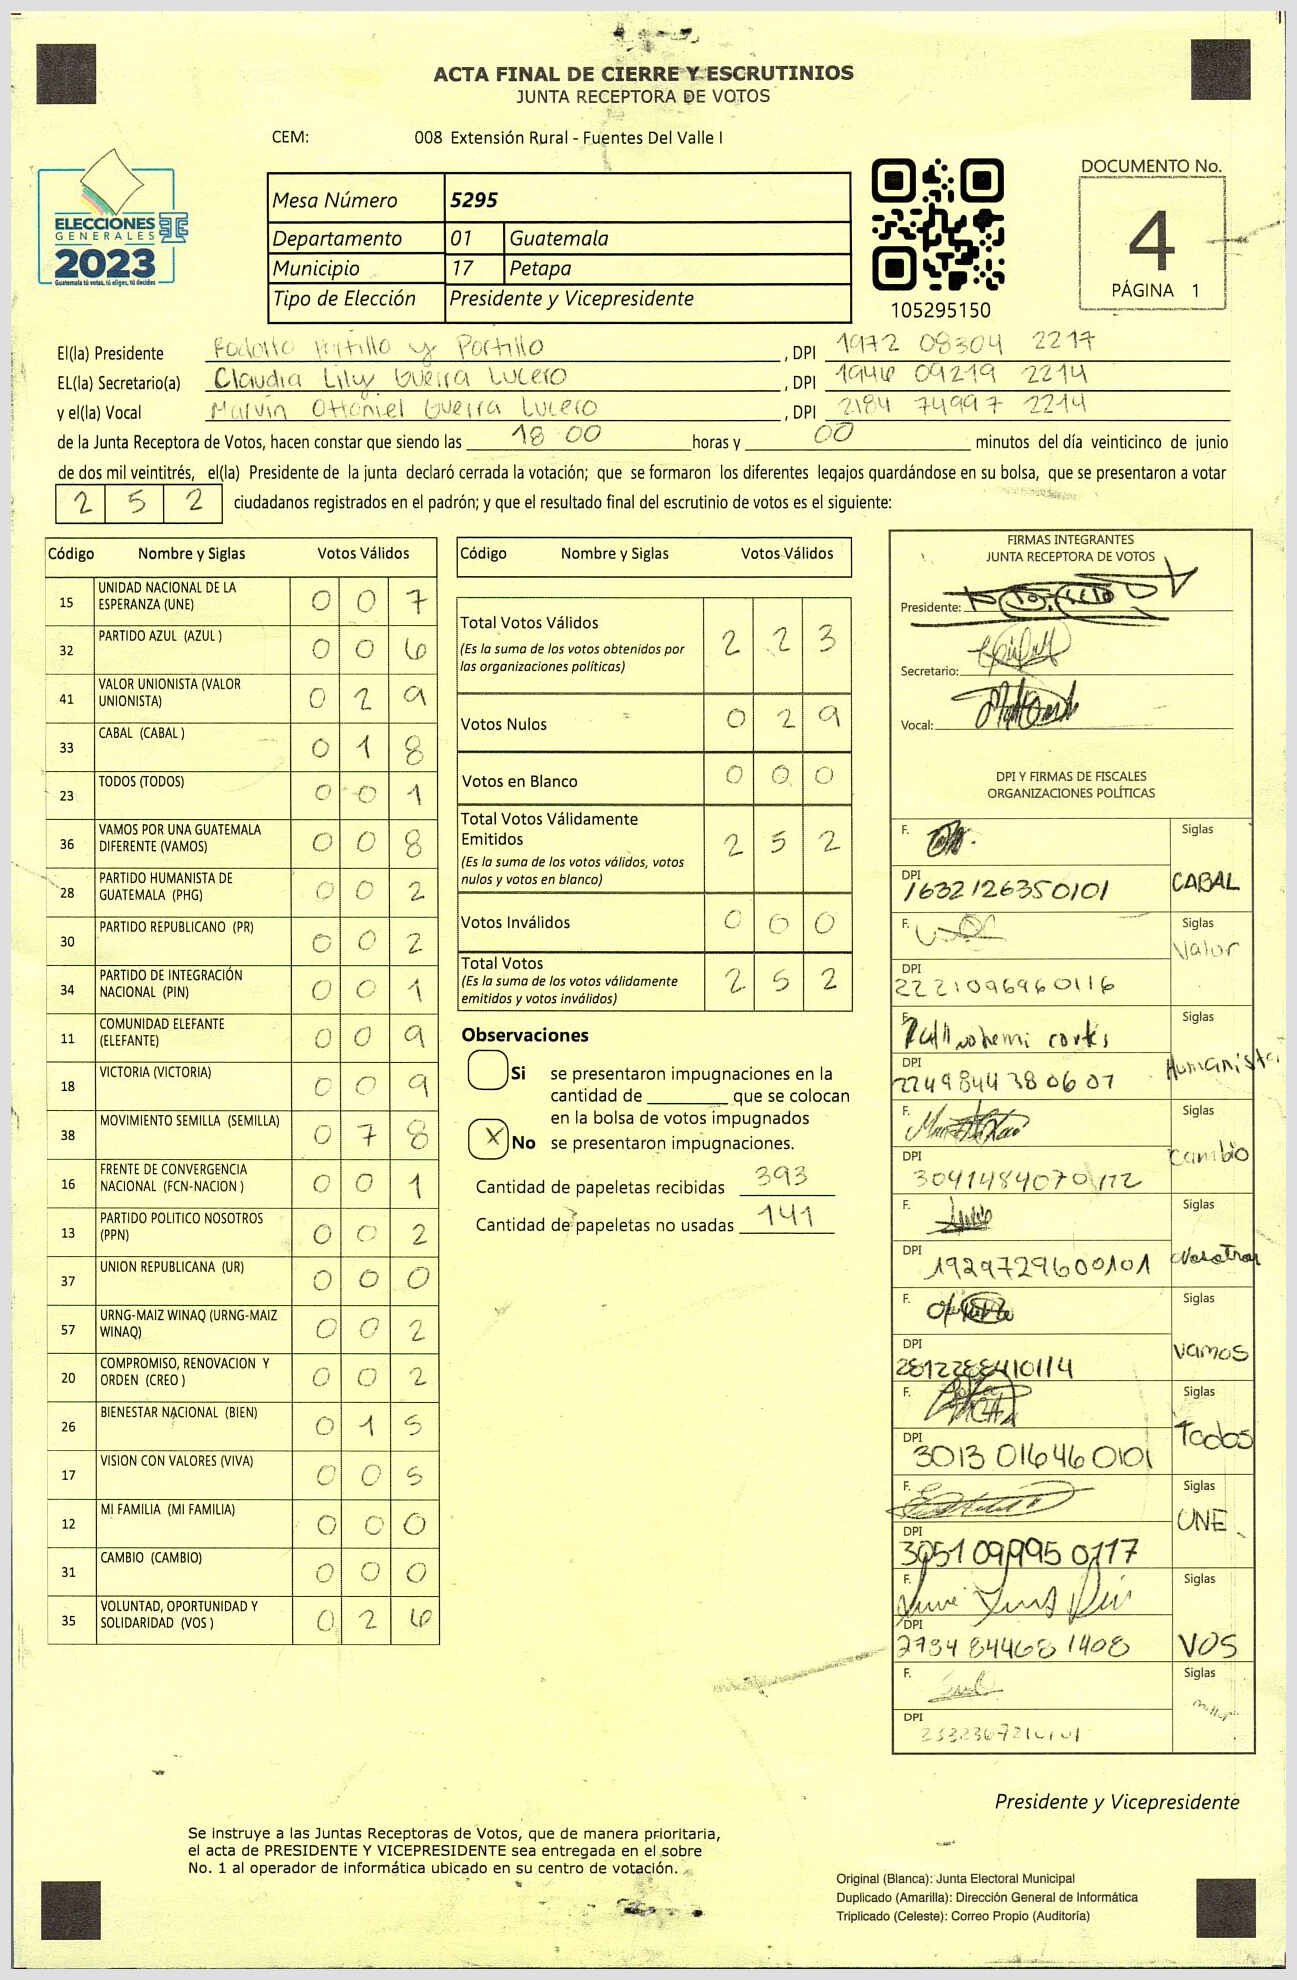 ACTA FINAL DE CIERRE Y ESCRUTINIOS
JUNTA RECEPTORA DE VOTOS
CEM: 008 Extensión Rural - Fuentes Del Valle I
ELECCIONES
GENERALES
2023
Guatemala tú votas, tú eliges, tú decides
Mesa Número 5295
Departamento 01 Guatemala
Municipio 17 Petapa
Tipo de Elección Presidente y Vicepresidente
105295150
DOCUMENTO No.
4
PÁGINA 1
El(la) Presidente Rodolfo Portillo y Portillo , DPI 1972 08304 2217
EL(la) Secretario(a) Claudia Lily Guerra Lucero , DPI 1946 09219 2214
y el(la) Vocal Marvin Ottoniel Guerra Lucero , DPI 2184 74997 2214
de la Junta Receptora de Votos, hacen constar que siendo las 18 00 horas y 00 minutos del día veinticinco de junio
de dos mil veintitrés, el(la) Presidente de la junta declaró cerrada la votación; que se formaron los diferentes legajos guardándose en su bolsa, que se presentaron a votar
2 5 2 ciudadanos registrados en el padrón; y que el resultado final del escrutinio de votos es el siguiente:
Código Nombre y Siglas Votos Válidos
15 UNIDAD NACIONAL DE LA ESPERANZA (UNE) 0 0 7
32 PARTIDO AZUL (AZUL ) 0 0 6
41 VALOR UNIONISTA (VALOR UNIONISTA) 0 2 9
33 CABAL (CABAL ) 0 1 8
23 TODOS (TODOS) 0 0 1
36 VAMOS POR UNA GUATEMALA DIFERENTE (VAMOS) 0 0 8
28 PARTIDO HUMANISTA DE GUATEMALA (PHG) 0 0 2
30 PARTIDO REPUBLICANO (PR) 0 0 2
34 PARTIDO DE INTEGRACIÓN NACIONAL (PIN) 0 0 1
11 COMUNIDAD ELEFANTE (ELEFANTE) 0 0 9
18 VICTORIA (VICTORIA) 0 0 9
38 MOVIMIENTO SEMILLA (SEMILLA) 0 7 8
16 FRENTE DE CONVERGENCIA NACIONAL (FCN-NACION ) 0 0 1
13 PARTIDO POLITICO NOSOTROS (PPN) 0 0 2
37 UNION REPUBLICANA (UR) 0 0 0
57 URNG-MAIZ WINAQ (URNG-MAIZ WINAQ) 0 0 2
20 COMPROMISO, RENOVACION Y ORDEN (CREO ) 0 0 2
26 BIENESTAR NACIONAL (BIEN) 0 1 5
17 VISION CON VALORES (VIVA) 0 0 5
12 MI FAMILIA (MI FAMILIA) 0 0 0
31 CAMBIO (CAMBIO) 0 0 0
35 VOLUNTAD, OPORTUNIDAD Y SOLIDARIDAD (VOS ) 0 2 6
Código Nombre y Siglas Votos Válidos
Total Votos Válidos 2 2 3
(Es la suma de los votos obtenidos por
las organizaciones políticas)
Votos Nulos 0 2 9
Votos en Blanco 0 0 0
Total Votos Válidamente
Emitidos 2 5 2
(Es la suma de los votos válidos, votos
nulos y votos en blanco)
Votos Inválidos 0 0 0
Total Votos 2 5 2
(Es la suma de los votos válidamente
emitidos y votos inválidos)
Observaciones
Si se presentaron impugnaciones en la
cantidad de ________ que se colocan
en la bolsa de votos impugnados
X No se presentaron impugnaciones.
Cantidad de papeletas recibidas 393
Cantidad de papeletas no usadas 141
FIRMAS INTEGRANTES
JUNTA RECEPTORA DE VOTOS
Presidente:
Secretario:
Vocal:
DPI Y FIRMAS DE FISCALES
ORGANIZACIONES POLÍTICAS
F. Siglas
DPI 1632126350101 CABAL
F. Siglas
DPI 2221096960116 Valor
F. Siglas
DPI 2249844380607 Humanista
F. Siglas
DPI Cambio
F. Siglas
DPI 1929729600101 Nosotros
F. Siglas
DPI Vamos
F. Siglas
DPI 3013016460101 Todos
F. Siglas
DPI 3051099950117 UNE
F. Siglas
DPI 2734844681408 VOS
F. Siglas
DPI
Presidente y Vicepresidente
Se instruye a las Juntas Receptoras de Votos, que de manera prioritaria,
el acta de PRESIDENTE Y VICEPRESIDENTE sea entregada en el sobre
No. 1 al operador de informática ubicado en su centro de votación.
Original (Blanca): Junta Electoral Municipal
Duplicado (Amarilla): Dirección General de Informática
Triplicado (Celeste): Correo Propio (Auditoría)